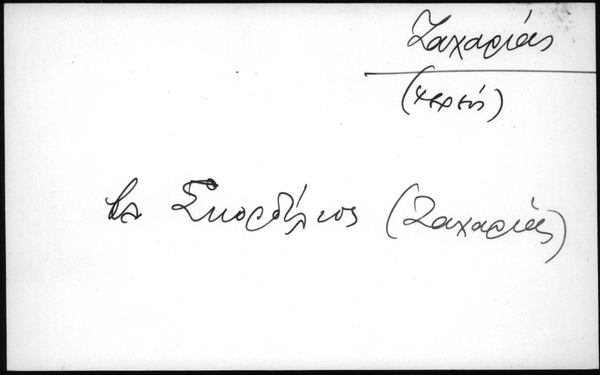 Ζαχαρίας
(ιερεύς)
βλ Σκορδήλιος (Ζαχαρίας)